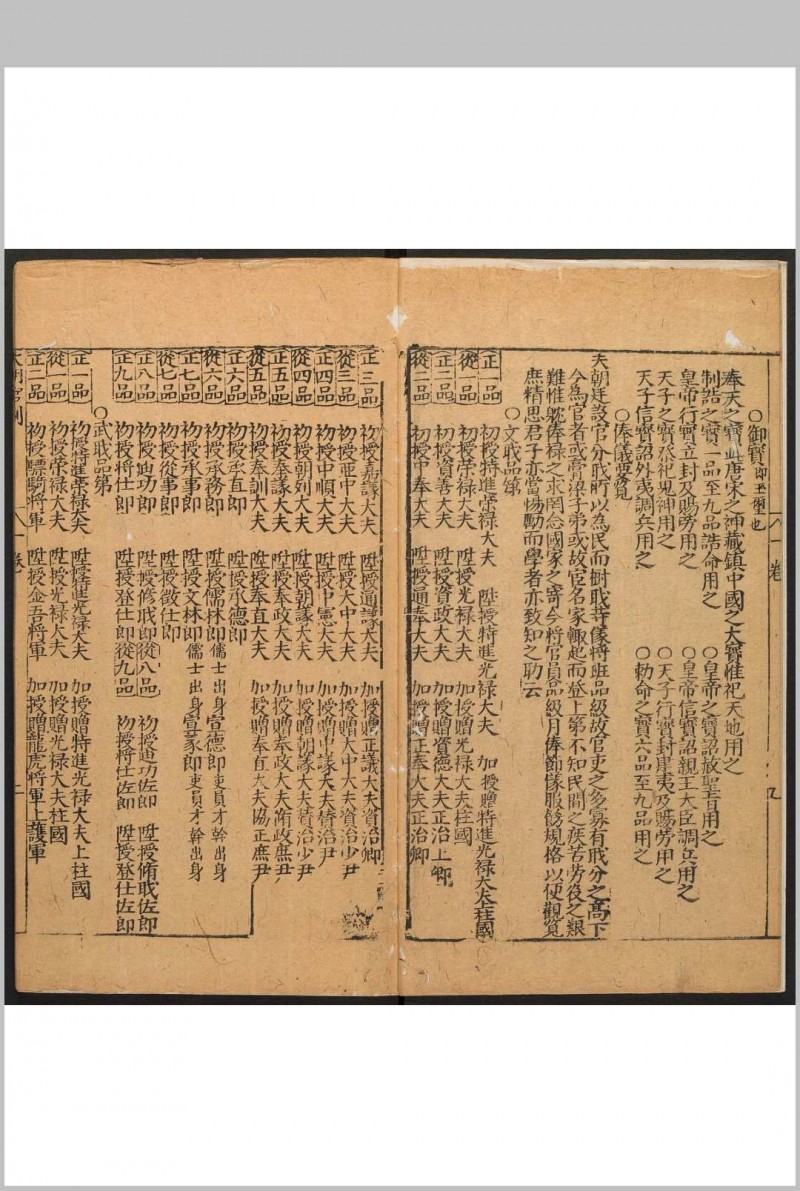 ○御寶即玉璽也
奉天之寶此唐宋之神藏鎮中國之大寶惟祀天地用之
制誥之寶一品至九品誥命用之　○皇帝之寶詔赦聖旨用之
皇帝行寶立封及賜勞用之　○皇帝信寶詔親王大臣調兵用之
天子之寶祭祀鬼神用之　○天子行寶封崖夷及賜勞用之
天子信寶詔外夷調兵用之　○勑命之寶六品至九品用之
○俸儀要覧
夫朝廷設官分戝所以為民而樹戝等儀特班品級故官吏之多寡有戝分之高下
今為官者或膏梁子弟或故官名家輙起而登上第不知民間之疾苦勞役之艱
難惟躭俸禄之求罔念國家之寄今將官員品級月俸節儀服餙規格以便觀覧
庶精思君子亦當惕勵而學者亦致知之助云
○文戝品第
正一品　初授特進榮禄大夫　陞授特進光禄大夫　加授贈特進光禄大夫柱國
從一品　初授榮禄大夫　陞授光禄大夫　加授贈光禄大夫柱國
正二品　初授資善大夫　陞授資政大夫　加授贈資德大夫正治上卿
從二品　初授中奉大夫　陞授通奉大夫　加授贈正奉大夫正治卿
正三品　初授嘉議大夫　陞授通議大夫　加授贈正議大夫資治卿
從三品　初授亜中大夫　陞授大中大夫　加授贈大中大夫資治少尹
正四品　初授中順大夫　陞授中憲大夫　加授贈中議大夫賛治尹
從四品　初授朝列大夫　陞授朝議大夫　加授贈朝議大夫賛治少尹
正五品　初授奉議大夫　陞授奉政大夫　加授贈奉政大夫脩政庶尹
從五品　初授奉訓大夫　陞授奉直大夫　加授贈奉直大夫協正庶尹
正六品　初授承直郎　陞授承德郎
從六品　初授承務郎　陞授儒林郎儒士出身宣德郎吏員才幹出身
正七品　初授承事郎　陞授文林郎儒士出身宣議郎吏員才幹出身
從七品　初授從事郎　陞授徵仕郎
正八品　初授迪功郎　陞授修戝郎從八品　初授迪功佐郎　陞授脩戝佐郎
正九品　初授將仕郎　陞授登仕郎從九品　初授將仕佐郎　陞授登仕佐郎
○武戝品第
正一品　初授特進榮禄大夫　陞授特進光禄大夫　加授贈特進光禄大夫上柱國
從一品　初授榮禄大夫　陞授光禄大夫　加授贈光禄大夫柱國
正二品　初授驃騎將軍　陞授金吾將軍　加授贈龍虎將軍上護軍